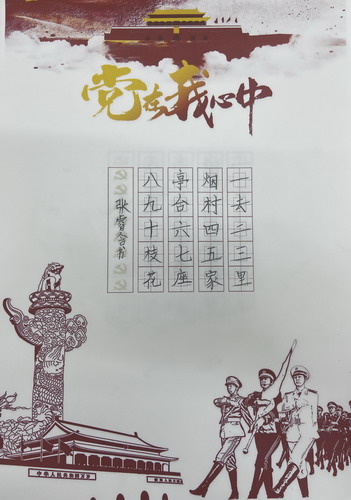 党在我心中
一去二三里
烟村四五家
亭台六七座
八九十枝花
张睿含书
中华人民共和国万岁